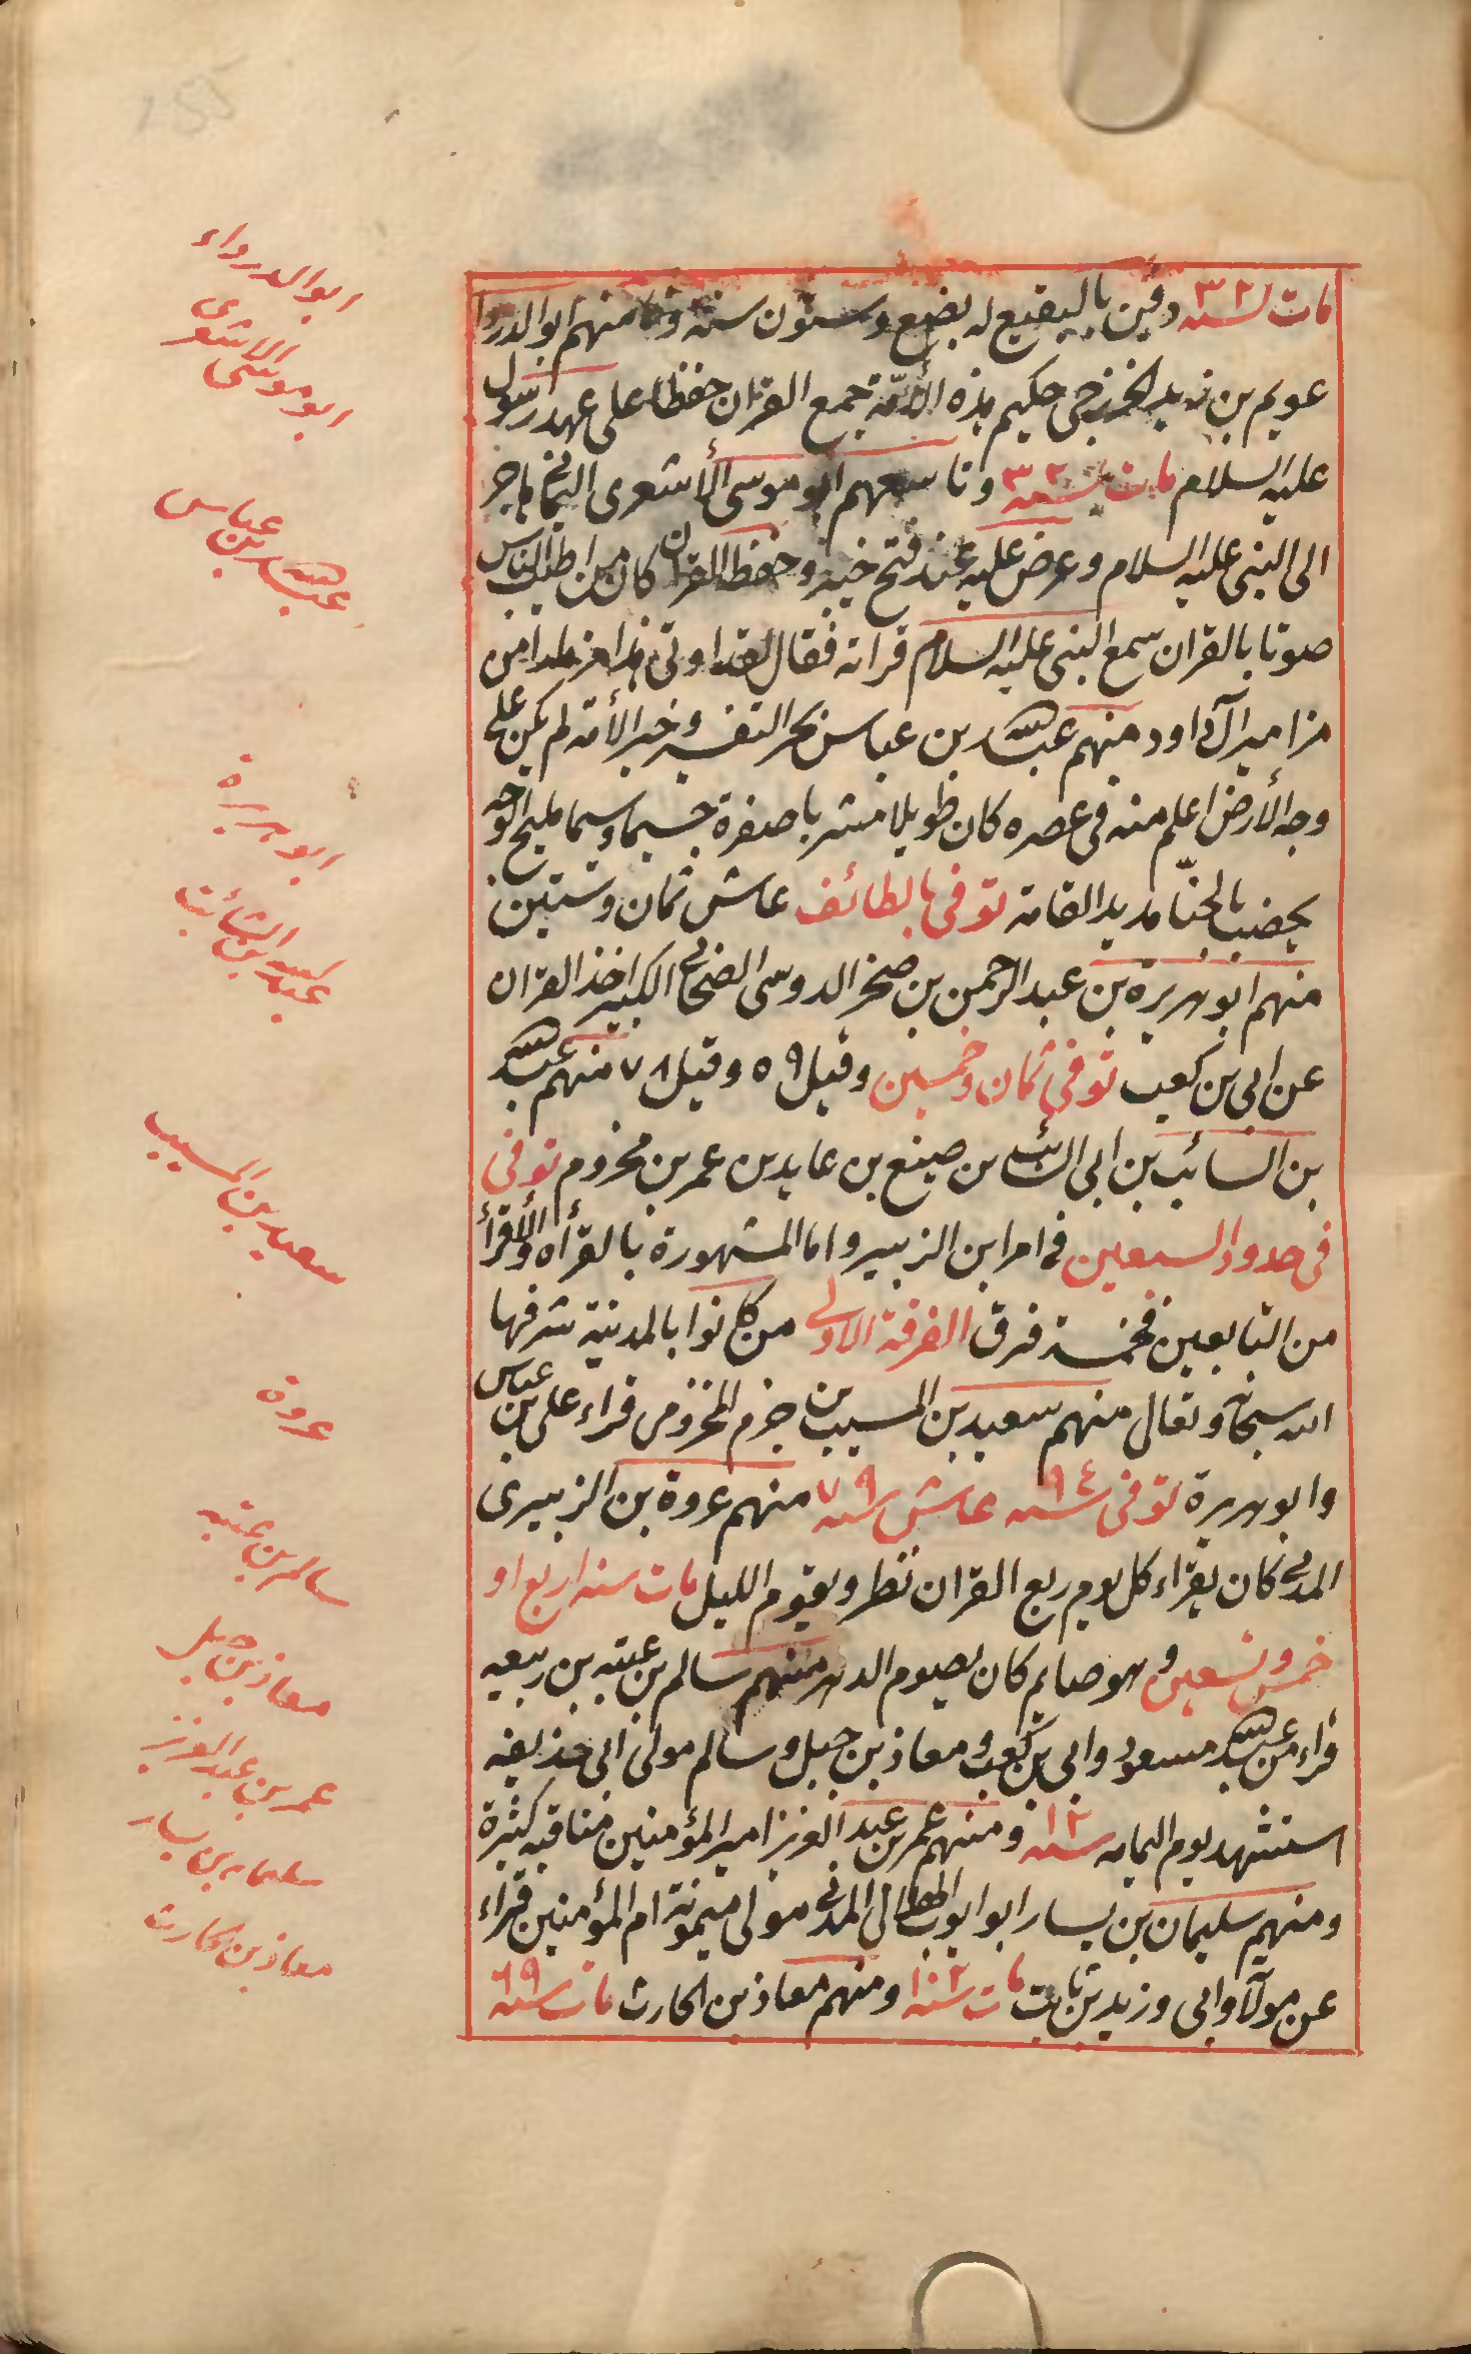 مات سنه ٣٢ دفين بالبقيع له بضع وستون سنة وثامنهم ابو الدرداء
عويم بن زيد الخزرجى حكيم هذه الأمّة جمع القران حفظا على عهد رسول
عليه السلام مات سنه ٣٢ وتاسعهم ابو موسى الأشعرى اليمانى هاجر
الى النبى عليه السلام وعرض عليه عند فتح خيبر وحفظ القران كان من اطيب الناس
صوتا بالقران سمع النبى عليه السلام قراته فقال لقد اوتى هذا مزمارا من
مزامير آل داود منهم عبد الله بن عباس بحر التفسير وحبر الأمة لم يكن على
وجه الأرض اعلم منه فى عصره كان طويلا مشربا صفرة جسيما وسيما مليح الوجه
يخضب بالحنّا مديد القامة توفى بالطائف عاش ثمان وستين
منهم ابو هريرة بن عبد الرحمن بن صخر الدوسى الصحابى الكبير اخذ القران
عن ابى بن كعب توفى ثمان وخمسين وقيل ٥٩ وقيل ٧٨ منهم عبد الله
بن السائب بن ابى السائب بن صيفع بن عايد بن عمر بن مخزوم توفى
فى حدود السبعين فى امر ابن الزبير واما المشهورة بالقرأه والأقرأ
من التابعين فخمسة فرق الفرقة الاولى من كانوا بالمدينة شرفها
الله سبحانه وتعالى منهم سعيد بن المسيب بن حزم المخزومى قراء على بن عباس
وابو هريرة توفى سنه ٩٤ عاش سنه ٧٩ منهم عروة بن الزبيرى
المدنى كان يقراء كل يوم ربع القران نظر ويقوم الليل مات سنه اربع او
خمس وتسعين وهو صايم كان يصوم الدهر منهم سالم بن عتبه بن ربيعه
قراء من عبد الله مسعود وابى بن كعب ومعاذ بن جبل وسالم مولى ابى حذيفه
استشهد يوم اليمامه سنه ١٢ ومنهم عمر بن عبد العزيز امير المؤمنين مناقبه كثيرة
ومنهم سليمان بن يسار ابو ايوب الهلالى المدنى مولى ميمونة ام المؤمنين قراء
عن مولاه وابى وزيد بن ثابت مات سنه ١٠٢ ومنهم معاذ بن الحارث مات سنه ٦٩
ابو الدرداء
ابو موسى الاشعرى
عبد الله بن عباس
ابو هريرة
عبد الله بن السائب
سعيد بن المسيب
عروة
سالم بن عتبه
معاذ بن جبل
عمر بن عبد العزيز
سليمان بن يسار
معاذ بن الحارث